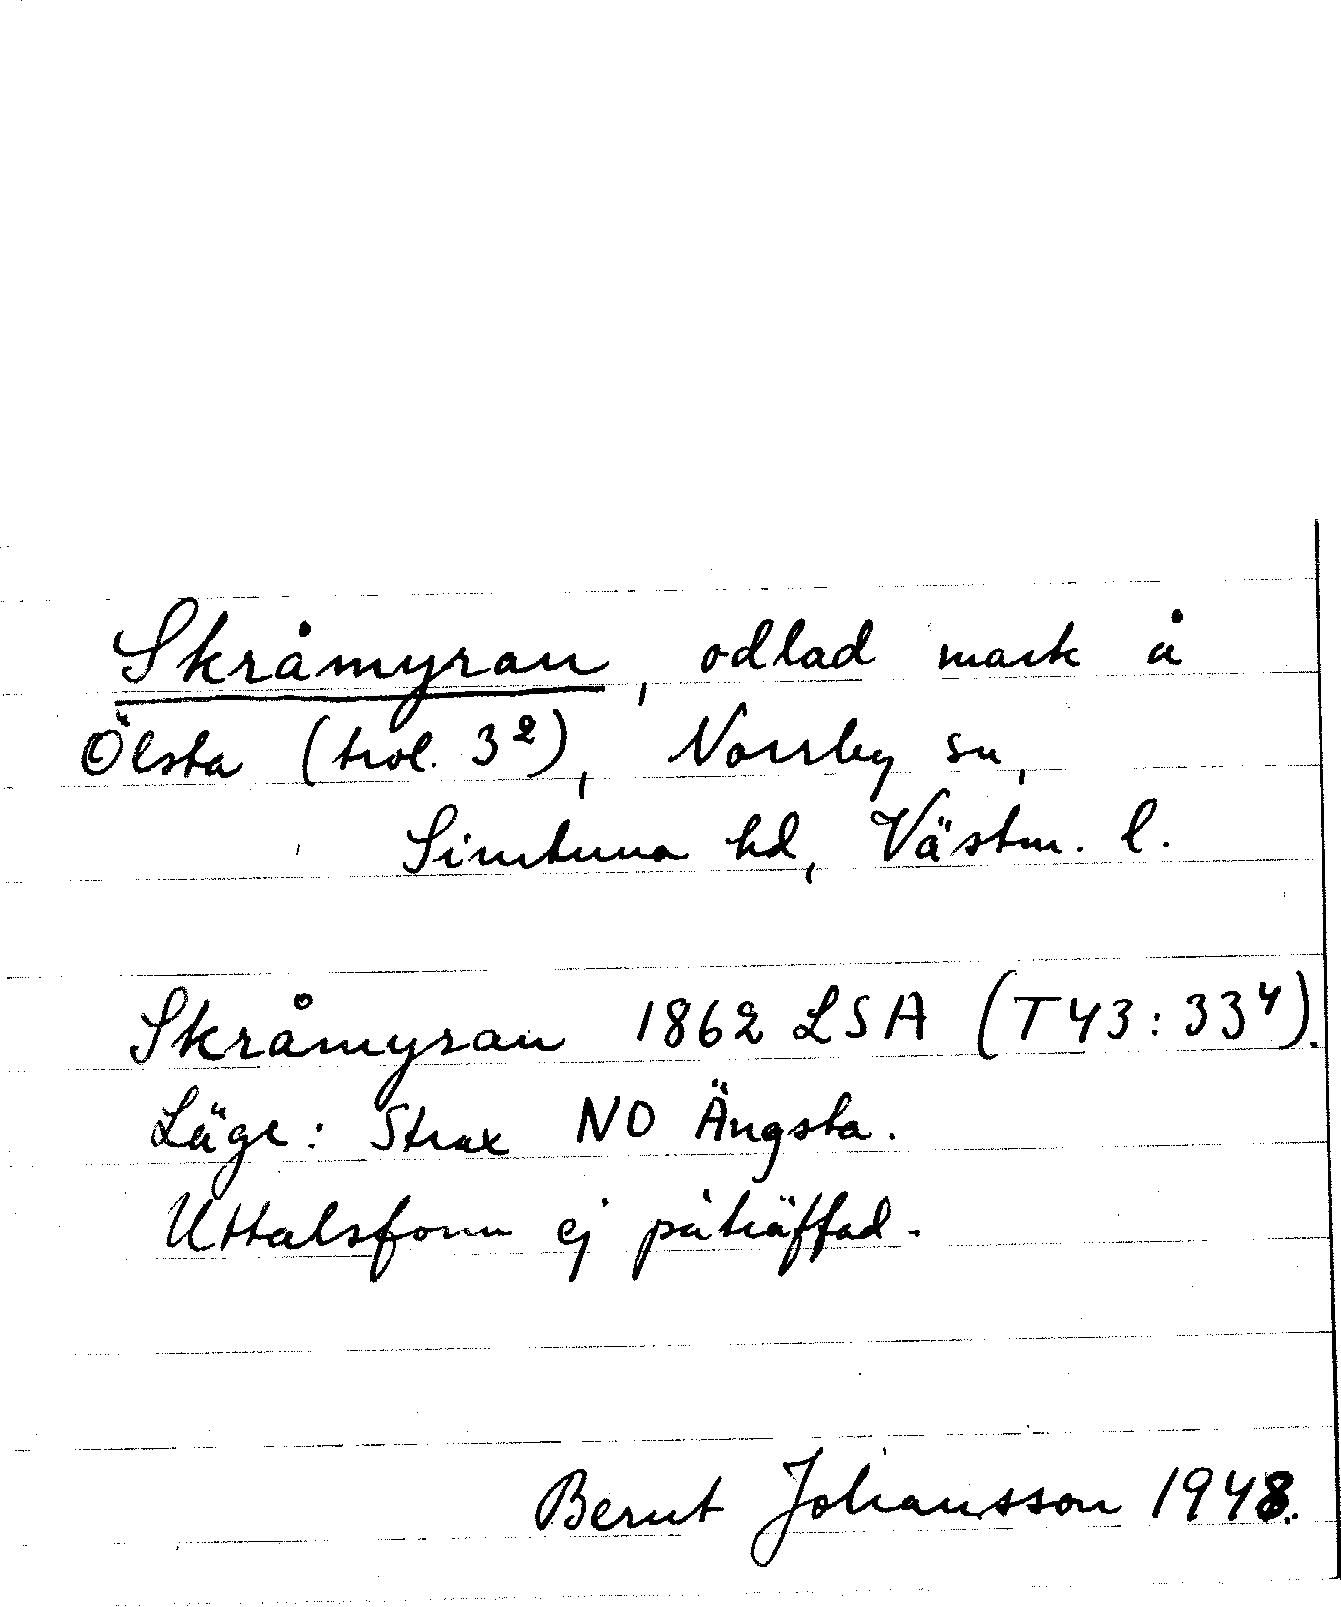 Skråmyran, odlad mark å
Ölsta (trol. 3²), Norrby sn,
Simtuna hd, Västm. l.
Skråmyran 1862 LSA (T43:33⁴).
Läge: Strax NO Ängsta.
Uttalsform ej påträffad.
Bernt Johansson 1948.